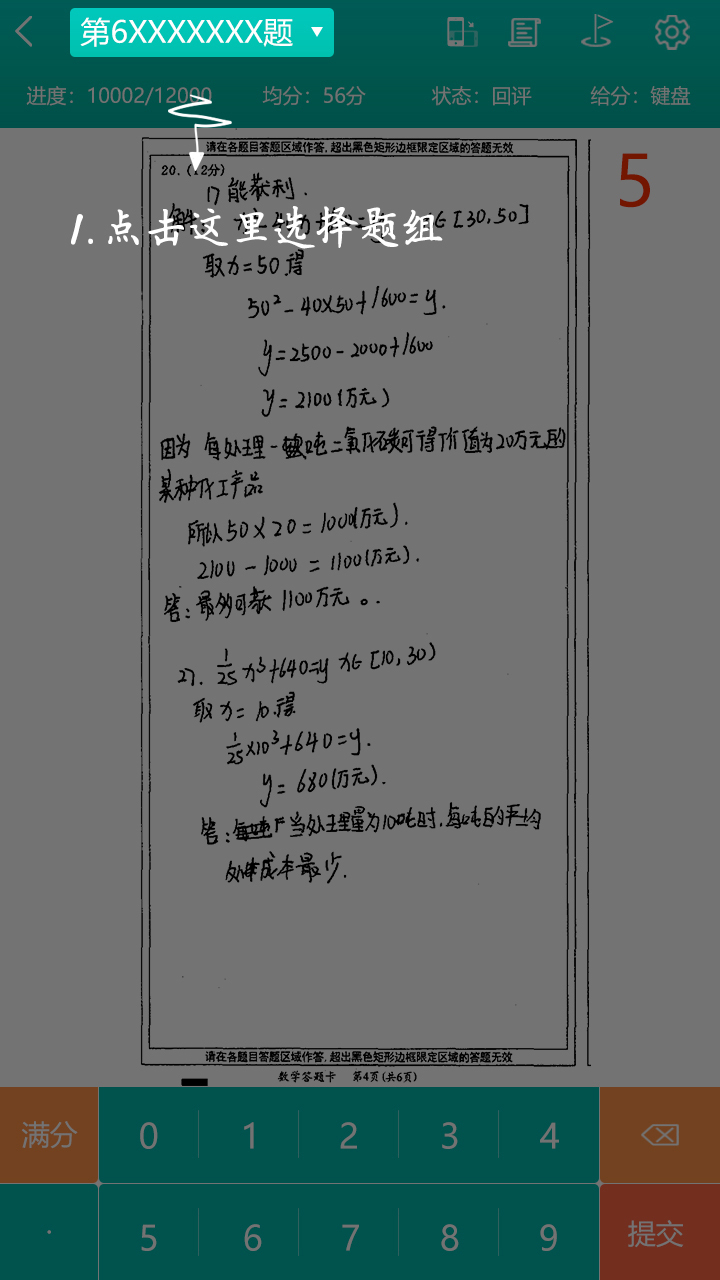 第6XXXXXXX题
进度：10002/12000 均分：56分 状态：回评 给分：键盘
请在各题目答题区域作答，超出黑色矩形边框限定区域的答题无效
5
20.（12分）
1) 能获利.
1.点击这里选择题组
∈[30,50]
取x=50得
50²-40×50+1600=y.
y=2500-2000+1600
y=2100(万元)
因为 每处理一吨二氧化碳可得价值为20万元的
某种化工产品
所以50×20=1000(万元).
2100-1000=1100(万元).
答:最多可获1100万元。.
27. 1/25 x³+640=y x∈[10,30)
取x=10.得
1/25×10³+640=y.
y=680(万元).
答: 当处理量为10吨时,每吨的平均
成本最少.
请在各题目答题区域作答，超出黑色矩形边框限定区域的答题无效
数学答题卡 第4页(共6页)
满分 0 1 2 3 4
. 5 6 7 8 9 提交